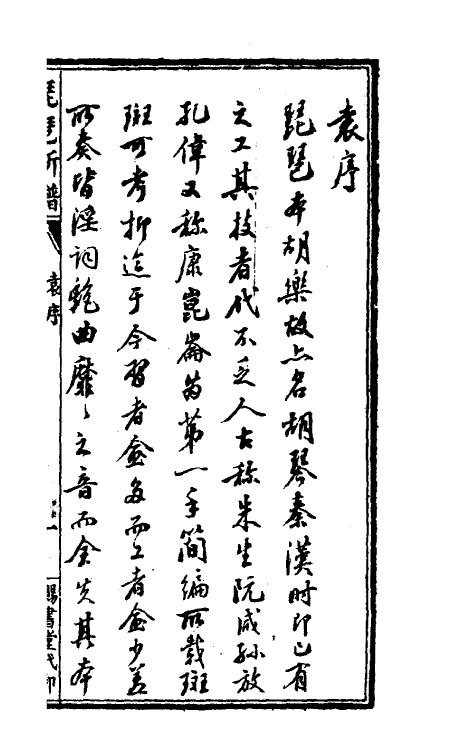 袁序
琵琶本胡樂故亦名胡琴秦漢時即已有
之工其技者代不乏人古称朱生阮咸孫放
孔偉又称康崑崙为第一手簡編所載斑
斑可考抑迨于今習者愈多而工者愈少蓋
所奏皆淫詞艷曲靡〻之音而全失其本
琵琶新譜
袁序
一
賜書堂代印